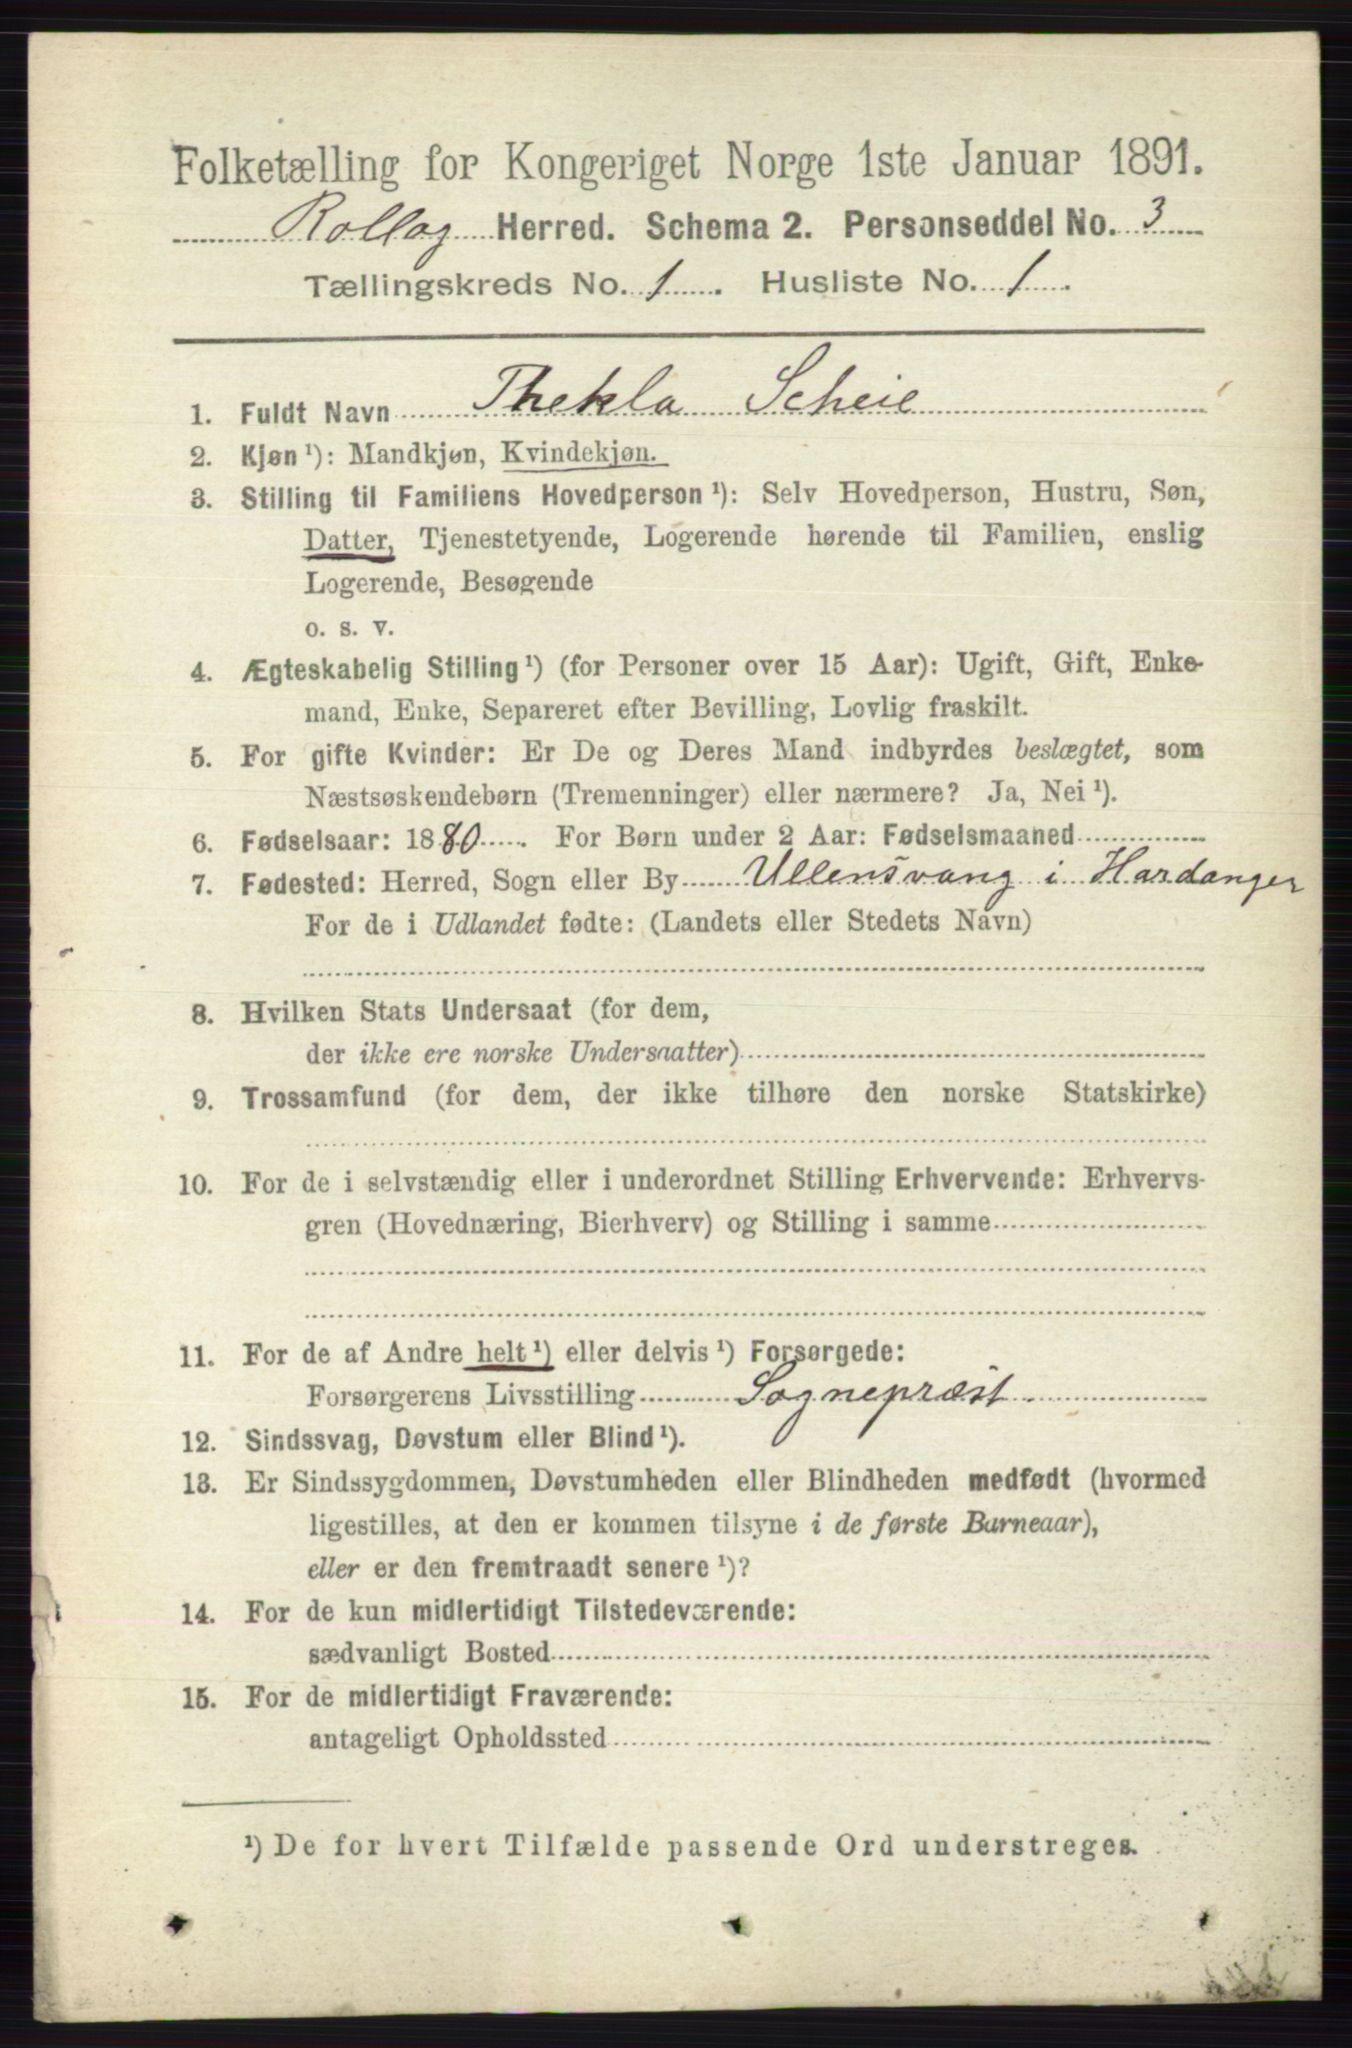 Folketælling for Kongeriget Norge 1ste Januar 1891.
Rollag Herred. Schema 2. Personseddel No. 3
Tællingskreds No. 1. Husliste No. 1.
1. Fuldt Navn Thekla Scheie
2. Kjøn ¹): Mandkjøn, Kvindekjøn.
3. Stilling til Familiens Hovedperson ¹): Selv Hovedperson, Hustru, Søn,
Datter, Tjenestetyende, Logerende hørende til Familien, enslig
Logerende, Besøgende
o. s. v.
4. Ægteskabelig Stilling ¹) (for Personer over 15 Aar): Ugift, Gift, Enke-
mand, Enke, Separeret efter Bevilling, Lovlig fraskilt.
5. For gifte Kvinder: Er De og Deres Mand indbyrdes beslægtet, som
Næstsøskendebørn (Tremenninger) eller nærmere? Ja, Nei ¹).
6. Fødselsaar: 1880. For Børn under 2 Aar: Fødselsmaaned
7. Fødested: Herred, Sogn eller By Ullensvang i Hardanger
For de i Udlandet fødte: (Landets eller Stedets Navn)
8. Hvilken Stats Undersaat (for dem,
der ikke ere norske Undersaatter)
9. Trossamfund (for dem, der ikke tilhøre den norske Statskirke)
10. For de i selvstændig eller i underordnet Stilling Erhvervende: Erhvervs-
gren (Hovednæring, Bierhverv) og Stilling i samme
11. For de af Andre helt ¹) eller delvis ¹) Forsørgede:
Forsørgerens Livsstilling Sognepræst.
12. Sindssvag, Døvstum eller Blind ¹).
13. Er Sindssygdommen, Døvstumheden eller Blindheden medfødt (hvormed
ligestilles, at den er kommen tilsyne i de første Barneaar),
eller er den fremtraadt senere ¹)?
14. For de kun midlertidigt Tilstedeværende:
sædvanligt Bosted
15. For de midlertidigt Fraværende:
antageligt Opholdssted
¹) De for hvert Tilfælde passende Ord understreges.